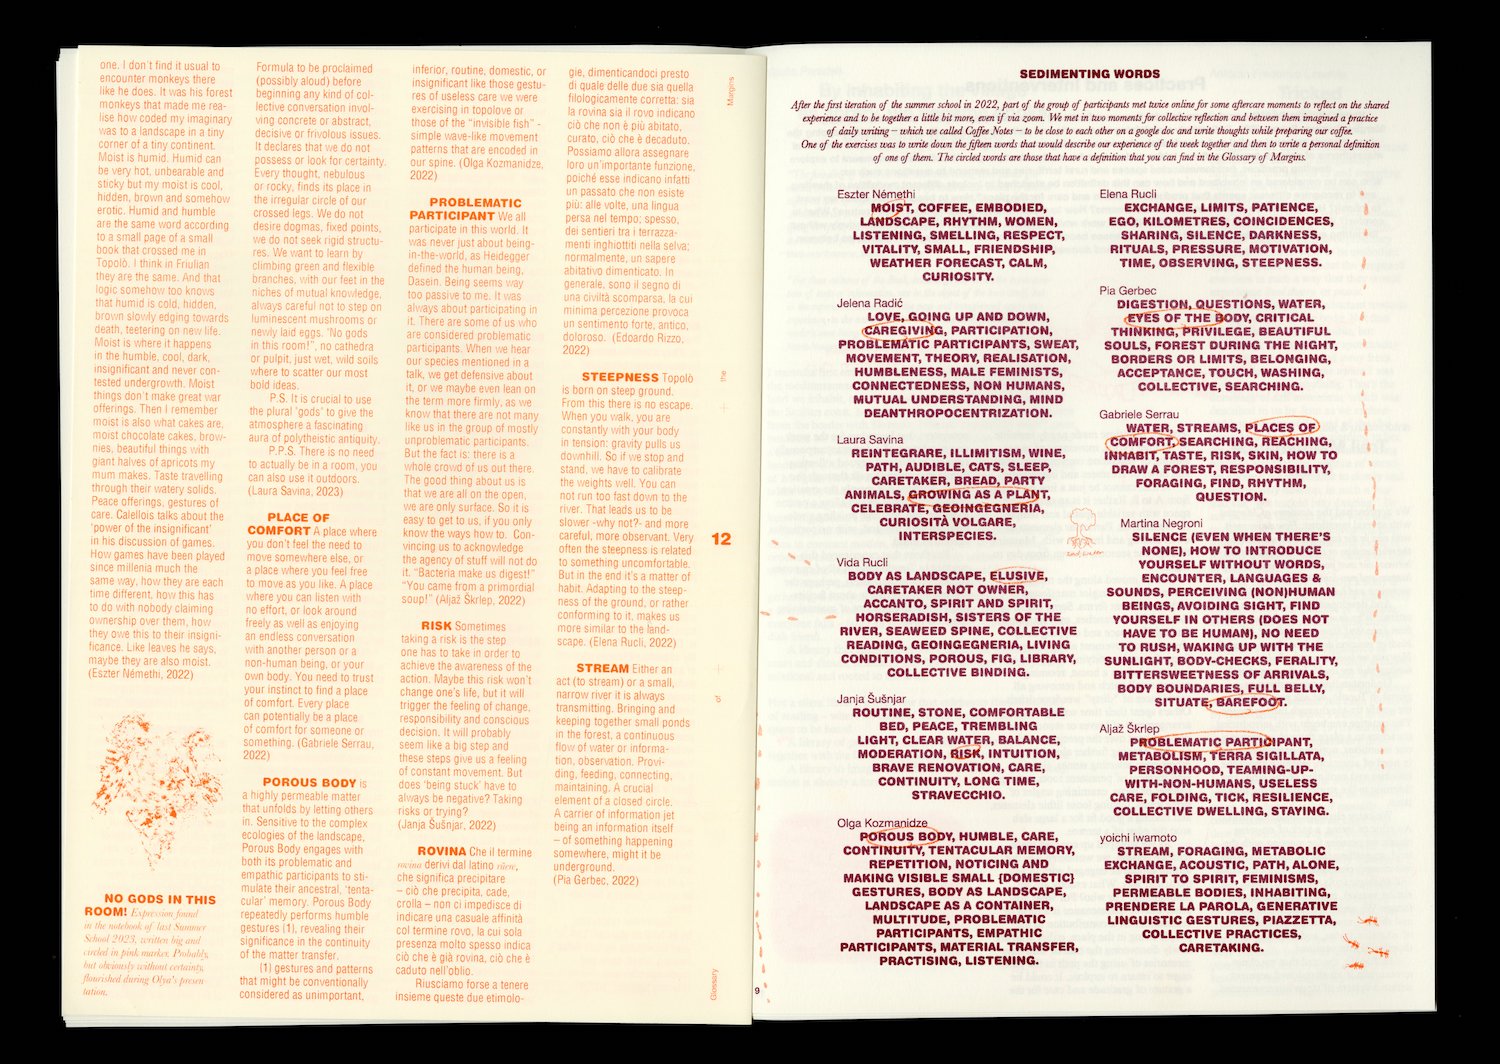 one. I don't find it usual to
encounter monkeys there
like he does. It was his forest
monkeys that made me rea-
lise how coded my imaginary
was to a landscape in a tiny
corner of a tiny continent.
Moist is humid. Humid can
be very hot, unbearable and
sticky but my moist is cool,
hidden, brown and somehow
erotic. Humid and humble
are the same word according
to a small page of a small
book that crossed me in
Topolò. I think in Friulian
they are the same. And that
logic somehow too knows
that humid is cold, hidden,
brown slowly edging towards
death, teetering on new life.
Moist is where it happens
in the humble, cool, dark,
insignificant and never con-
tested undergrowth. Moist
things don't make great war
offerings. Then I remember
moist is also what cakes are,
moist chocolate cakes, brow-
nies, beautiful things with
giant halves of apricots my
mum makes. Taste travelling
through their watery solids.
Peace offerings, gestures of
care. Calellois talks about the
'power of the insignificant'
in his discussion of games.
How games have been played
since millenia much the
same way, how they are each
time different, how this has
to do with nobody claiming
ownership over them, how
they owe this to their insigni-
ficance. Like leaves he says,
maybe they are also moist.
(Eszter Némethi, 2022)
NO GODS IN THIS
ROOM! Expression found
in the notebook of last Summer
School 2023, written big and
circled in pink marker. Probably,
but obviously without certainty,
flourished during Olya's presen
tation.
Formula to be proclaimed
(possibly aloud) before
beginning any kind of col-
lective conversation invol-
ving concrete or abstract,
decisive or frivolous issues.
It declares that we do not
possess or look for certainty.
Every thought, nebulous
or rocky, finds its place in
the irregular circle of our
crossed legs. We do not
desire dogmas, fixed points,
we do not seek rigid structu-
res. We want to learn by
climbing green and flexible
branches, with our feet in the
niches of mutual knowledge,
always careful not to step on
luminescent mushrooms or
newly laid eggs. "No gods
in this room!", no cathedra
or pulpit, just wet, wild soils
where to scatter our most
bold ideas.
P.S. It is crucial to use
the plural 'gods' to give the
atmosphere a fascinating
aura of polytheistic antiquity.
P.P.S. There is no need
to actually be in a room, you
can also use it outdoors.
(Laura Savina, 2023)
PLACE OF
COMFORT A place where
you don't feel the need to
move somewhere else, or
a place where you feel free
to move as you like. A place
where you can listen with
no effort, or look around
freely as well as enjoying
an endless conversation
with another person or a
non-human being, or your
own body. You need to trust
your instinct to find a place
of comfort. Every place
can potentially be a place
of comfort for someone or
something. (Gabriele Serrau,
2022)
POROUS BODY is
a highly permeable matter
that unfolds by letting others
in. Sensitive to the complex
ecologies of the landscape,
Porous Body engages with
both its problematic and
empathic participants to sti-
mulate their ancestral, 'tenta-
cular' memory. Porous Body
repeatedly performs humble
gestures (1), revealing their
significance in the continuity
of the matter transfer.
(1) gestures and patterns
that might be conventionally
considered as unimportant,
inferior, routine, domestic, or
insignificant like those gestu-
res of useless care we were
exercising in topolove or
those of the "invisible fish" -
simple wave-like movement
patterns that are encoded in
our spine. (Olga Kozmanidze,
2022)
PROBLEMATIC
PARTICIPANT We all
participate in this world. It
was never just about being-
in-the-world, as Heidegger
defined the human being,
Dasein. Being seems way
too passive to me. It was
always about participating in
it. There are some of us who
are considered problematic
participants. When we hear
our species mentioned in a
talk, we get defensive about
it, or we maybe even lean on
the term more firmly, as we
know that there are not many
like us in the group of mostly
unproblematic participants.
But the fact is: there is a
whole crowd of us out there.
The good thing about us is
that we are all on the open,
we are only surface. So it is
easy to get to us, if you only
know the ways how to. Con-
vincing us to acknowledge
the agency of stuff will not do
it. "Bacteria make us digest!"
"You came from a primordial
soup!" (Aljaž Škrlep, 2022)
RISK Sometimes
taking a risk is the step
one has to take in order to
achieve the awareness of the
action. Maybe this risk won't
change one's life, but it will
trigger the feeling of change,
responsibility and conscious
decision. It will probably
seem like a big step and
these steps give us a feeling
of constant movement. But
does 'being stuck' have to
always be negative? Taking
risks or trying?
(Janja Šušnjar, 2022)
ROVINA Che il termine
rovina derivi dal latino ruere,
che significa precipitare
– ciò che precipita, cade,
crolla – non ci impedisce di
indicare una casuale affinità
col termine rovo, la cui sola
presenza molto spesso indica
ciò che è già rovina, ciò che è
caduto nell'oblio.
Riusciamo forse a tenere
insieme queste due etimolo-
gie, dimenticandoci presto
di quale delle due sia quella
filologicamente corretta: sia
la rovina sia il rovo indicano
ciò che non è più abitato,
curato, ciò che è decaduto.
Possiamo allora assegnare
loro un'importante funzione,
poiché esse indicano infatti
un passato che non esiste
più: alle volte, una lingua
persa nel tempo; spesso,
dei sentieri tra i terrazza-
menti inghiottiti nella selva;
normalmente, un sapere
abitativo dimenticato. In
generale, sono il segno di
una civiltà scomparsa, la cui
minima percezione provoca
un sentimento forte, antico,
doloroso. (Edoardo Rizzo,
2022)
STEEPNESS Topolò
is born on steep ground.
From this there is no escape.
When you walk, you are
constantly with your body
in tension: gravity pulls us
downhill. So if we stop and
stand, we have to calibrate
the weights well. You can
not run too fast down to the
river. That leads us to be
slower -why not?- and more
careful, more observant. Very
often the steepness is related
to something uncomfortable.
But in the end it's a matter of
habit. Adapting to the steep-
ness of the ground, or rather
conforming to it, makes us
more similar to the land-
scape. (Elena Rucli, 2022)
STREAM Either an
act (to stream) or a small,
narrow river it is always
transmitting. Bringing and
keeping together small ponds
in the forest, a continuous
flow of water or informa-
tion, observation. Provi-
ding, feeding, connecting,
maintaining. A crucial
element of a closed circle.
A carrier of information jet
being an information itself
– of something happening
somewhere, might it be
underground.
(Pia Gerbec, 2022)
Margins
the
12
of
Glossary
SEDIMENTING WORDS
After the first iteration of the summer school in 2022, part of the group of participants met twice online for some aftercare moments to reflect on the shared
experience and to be together a little bit more, even if via zoom. We met in two moments for collective reflection and between them imagined a practice
of daily writing – which we called Coffee Notes – to be close to each other on a google doc and write thoughts while preparing our coffee.
One of the exercises was to write down the fifteen words that would describe our experience of the week together and then to write a personal definition
of one of them. The circled words are those that have a definition that you can find in the Glossary of Margins.
Eszter Némethi
MOIST, COFFEE, EMBODIED,
LANDSCAPE, RHYTHM, WOMEN,
LISTENING, SMELLING, RESPECT,
VITALITY, SMALL, FRIENDSHIP,
WEATHER FORECAST, CALM,
CURIOSITY.
Jelena Radić
LOVE, GOING UP AND DOWN,
CAREGIVING, PARTICIPATION,
PROBLEMATIC PARTICIPANTS, SWEAT,
MOVEMENT, THEORY, REALISATION,
HUMBLENESS, MALE FEMINISTS,
CONNECTEDNESS, NON HUMANS,
MUTUAL UNDERSTANDING, MIND
DEANTHROPOCENTRIZATION.
Laura Savina
REINTEGRARE, ILLIMITISM, WINE,
PATH, AUDIBLE, CATS, SLEEP,
CARETAKER, BREAD, PARTY
ANIMALS, GROWING AS A PLANT,
CELEBRATE, GEOINGEGNERIA,
CURIOSITÀ VOLGARE,
INTERSPECIES.
Vida Rucli
BODY AS LANDSCAPE, ELUSIVE,
CARETAKER NOT OWNER,
ACCANTO, SPIRIT AND SPIRIT,
HORSERADISH, SISTERS OF THE
RIVER, SEAWEED SPINE, COLLECTIVE
READING, GEOINGEGNERIA, LIVING
CONDITIONS, POROUS, FIG, LIBRARY,
COLLECTIVE BINDING.
Janja Šušnjar
ROUTINE, STONE, COMFORTABLE
BED, PEACE, TREMBLING
LIGHT, CLEAR WATER, BALANCE,
MODERATION, RISK, INTUITION,
BRAVE RENOVATION, CARE,
CONTINUITY, LONG TIME,
STRAVECCHIO.
Olga Kozmanidze
POROUS BODY, HUMBLE, CARE,
CONTINUITY, TENTACULAR MEMORY,
REPETITION, NOTICING AND
MAKING VISIBLE SMALL {DOMESTIC}
GESTURES, BODY AS LANDSCAPE,
LANDSCAPE AS A CONTAINER,
MULTITUDE, PROBLEMATIC
PARTICIPANTS, EMPATHIC
PARTICIPANTS, MATERIAL TRANSFER,
PRACTISING, LISTENING.
Elena Rucli
EXCHANGE, LIMITS, PATIENCE,
EGO, KILOMETRES, COINCIDENCES,
SHARING, SILENCE, DARKNESS,
RITUALS, PRESSURE, MOTIVATION,
TIME, OBSERVING, STEEPNESS.
Pia Gerbec
DIGESTION, QUESTIONS, WATER,
EYES OF THE BODY, CRITICAL
THINKING, PRIVILEGE, BEAUTIFUL
SOULS, FOREST DURING THE NIGHT,
BORDERS OR LIMITS, BELONGING,
ACCEPTANCE, TOUCH, WASHING,
COLLECTIVE, SEARCHING.
Gabriele Serrau
WATER, STREAMS, PLACES OF
COMFORT, SEARCHING, REACHING,
INHABIT, TASTE, RISK, SKIN, HOW TO
DRAW A FOREST, RESPONSIBILITY,
FORAGING, FIND, RHYTHM,
QUESTION.
Martina Negroni
SILENCE (EVEN WHEN THERE'S
NONE), HOW TO INTRODUCE
YOURSELF WITHOUT WORDS,
ENCOUNTER, LANGUAGES &
SOUNDS, PERCEIVING (NON)HUMAN
BEINGS, AVOIDING SIGHT, FIND
YOURSELF IN OTHERS (DOES NOT
HAVE TO BE HUMAN), NO NEED
TO RUSH, WAKING UP WITH THE
SUNLIGHT, BODY-CHECKS, FERALITY,
BITTERSWEETNESS OF ARRIVALS,
BODY BOUNDARIES, FULL BELLY,
SITUATE, BAREFOOT.
Aljaž Škrlep
PROBLEMATIC PARTICIPANT,
METABOLISM, TERRA SIGILLATA,
PERSONHOOD, TEAMING-UP-
WITH-NON-HUMANS, USELESS
CARE, FOLDING, TICK, RESILIENCE,
COLLECTIVE DWELLING, STAYING.
yoichi iwamoto
STREAM, FORAGING, METABOLIC
EXCHANGE, ACOUSTIC, PATH, ALONE,
SPIRIT TO SPIRIT, FEMINISMS,
PERMEABLE BODIES, INHABITING,
PRENDERE LA PAROLA, GENERATIVE
LINGUISTIC GESTURES, PIAZZETTA,
COLLECTIVE PRACTICES,
CARETAKING.
9